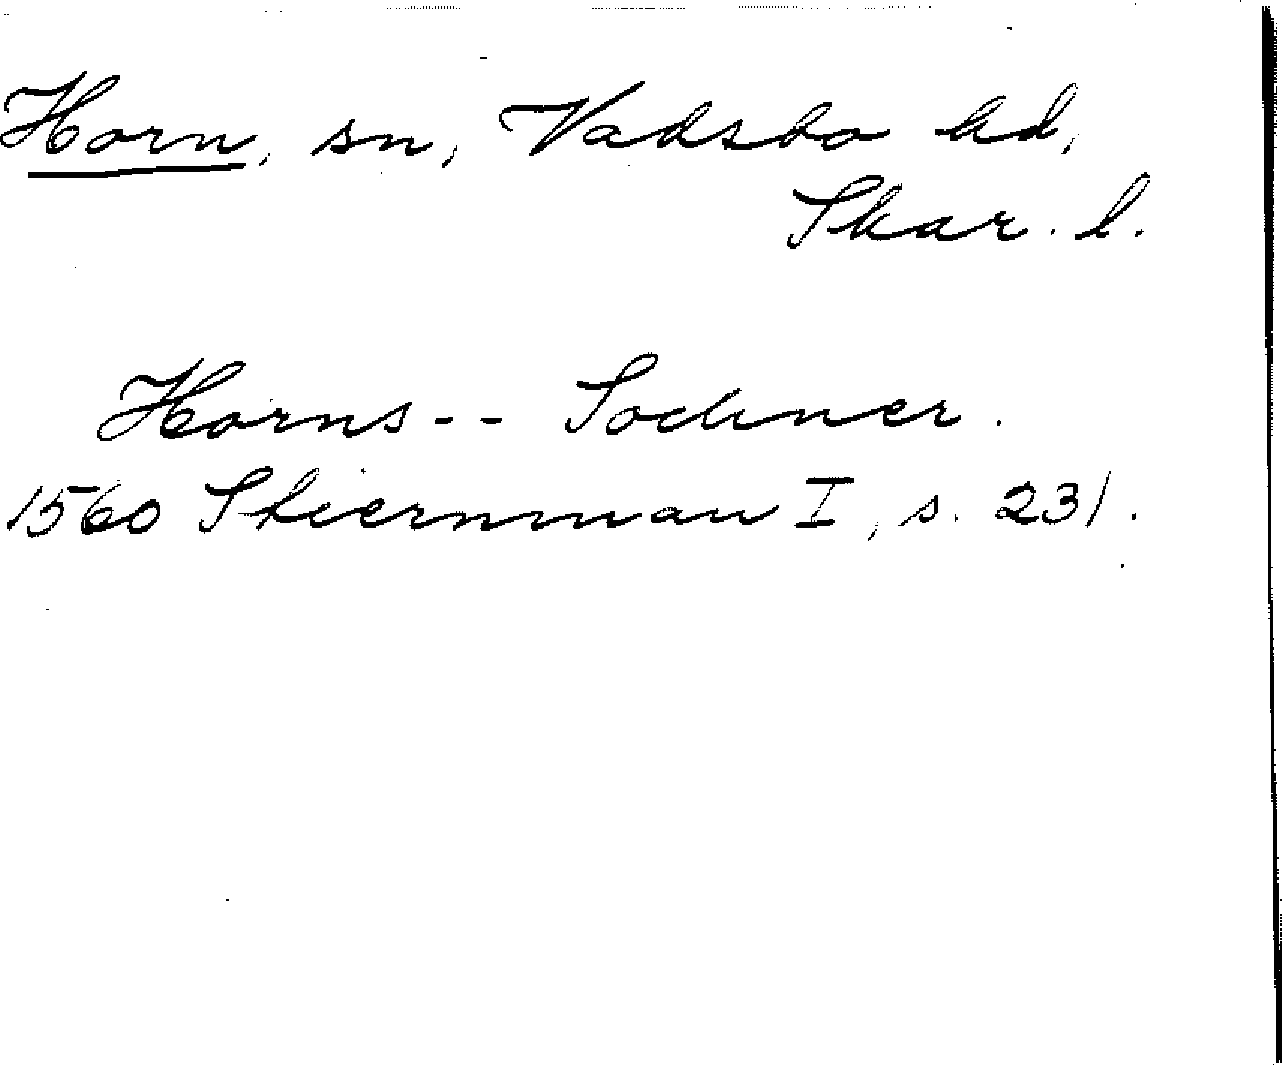 Horn, sn, Vadsbo hd,
Skar. l.
Horns-- Sochner.
1560 Stiernman I, s. 231.